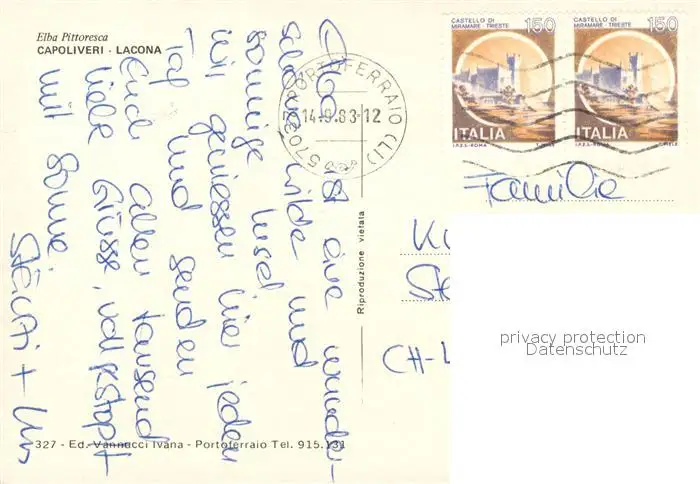 Elba Pittoresca
CAPOLIVERI - LACONA
CASTELLO DI
MIRAMARE - TRIESTE
150
CASTELLO DI
MIRAMARE - TRIESTE
150
ITALIA
I.P.Z.S. - ROMA
ITALIA
I.P.Z.S. - ROMA
57037 PORTOFERRAIO (LI)
14.9.83-12
Elba ist eine wunder-
schöne wilde und
sonnige Insel
wir geniessen hier jeden
Tag und senden
Euch allen tausend
liebe Grüsse, vollgestopft
mit Sonne
Familie
CH-
Riproduzione vietata
privacy protection
Datenschutz
327 - Ed. Vannucci Ivana - Portoferraio Tel. 915.131